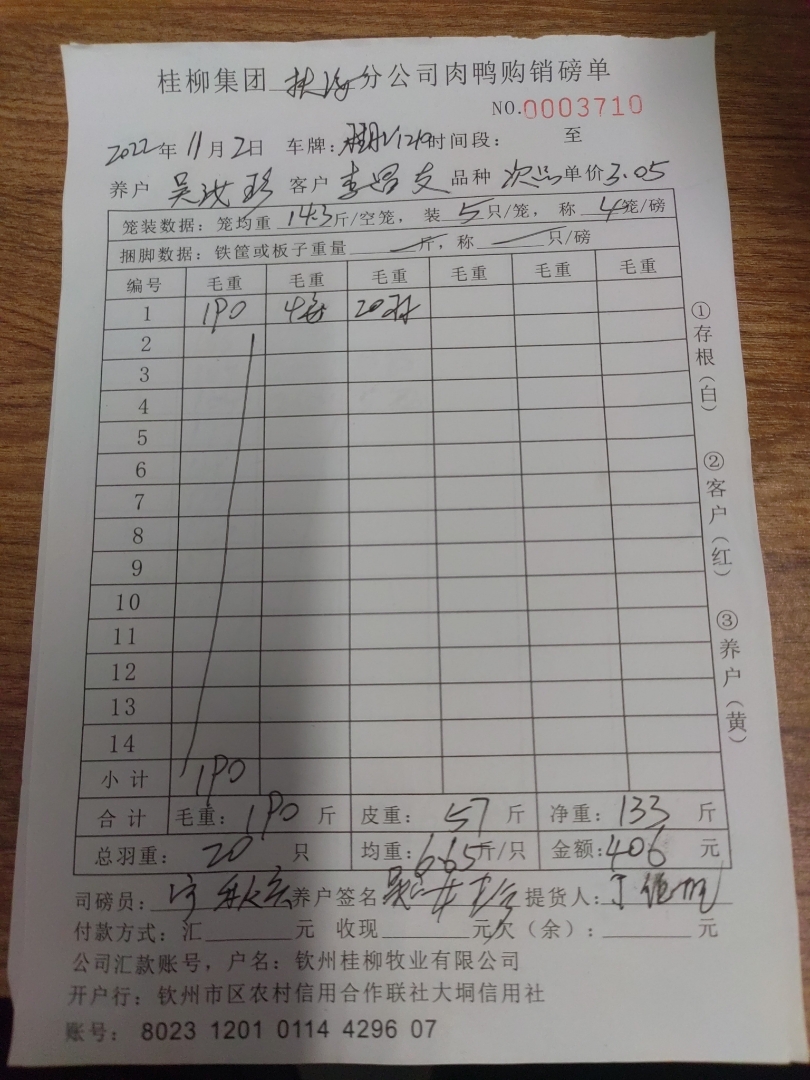 桂柳集团 分公司肉鸭购销磅单
NO.0003710
2022年11月2日 车牌: 时间段: 至
养户 吴 珍 客户 李昌友 品种 次品 单价3.05
笼装数据: 笼均重 14.3斤/空笼, 装 5只/笼, 称 4笼/磅
捆脚数据: 铁筐或板子重量 斤, 称 只/磅
编号 毛重 毛重 毛重 毛重 毛重 毛重
1 190 4笼 20只
2
3
4
5
6
7
8
9
10
11
12
13
14
小计 190
合计 毛重: 190 斤 皮重: 57 斤 净重: 133 斤
总羽重: 20 只 均重: 6.65斤/只 金额: 406 元
司磅员: 养户签名 提货人:
付款方式: 汇 元 收现 元欠(余): 元
公司汇款账号, 户名: 钦州桂柳牧业有限公司
开户行: 钦州市区农村信用合作联社大垌信用社
账号: 8023 1201 0114 4296 07
①存根(白)
②客户(红)
③养户(黄)